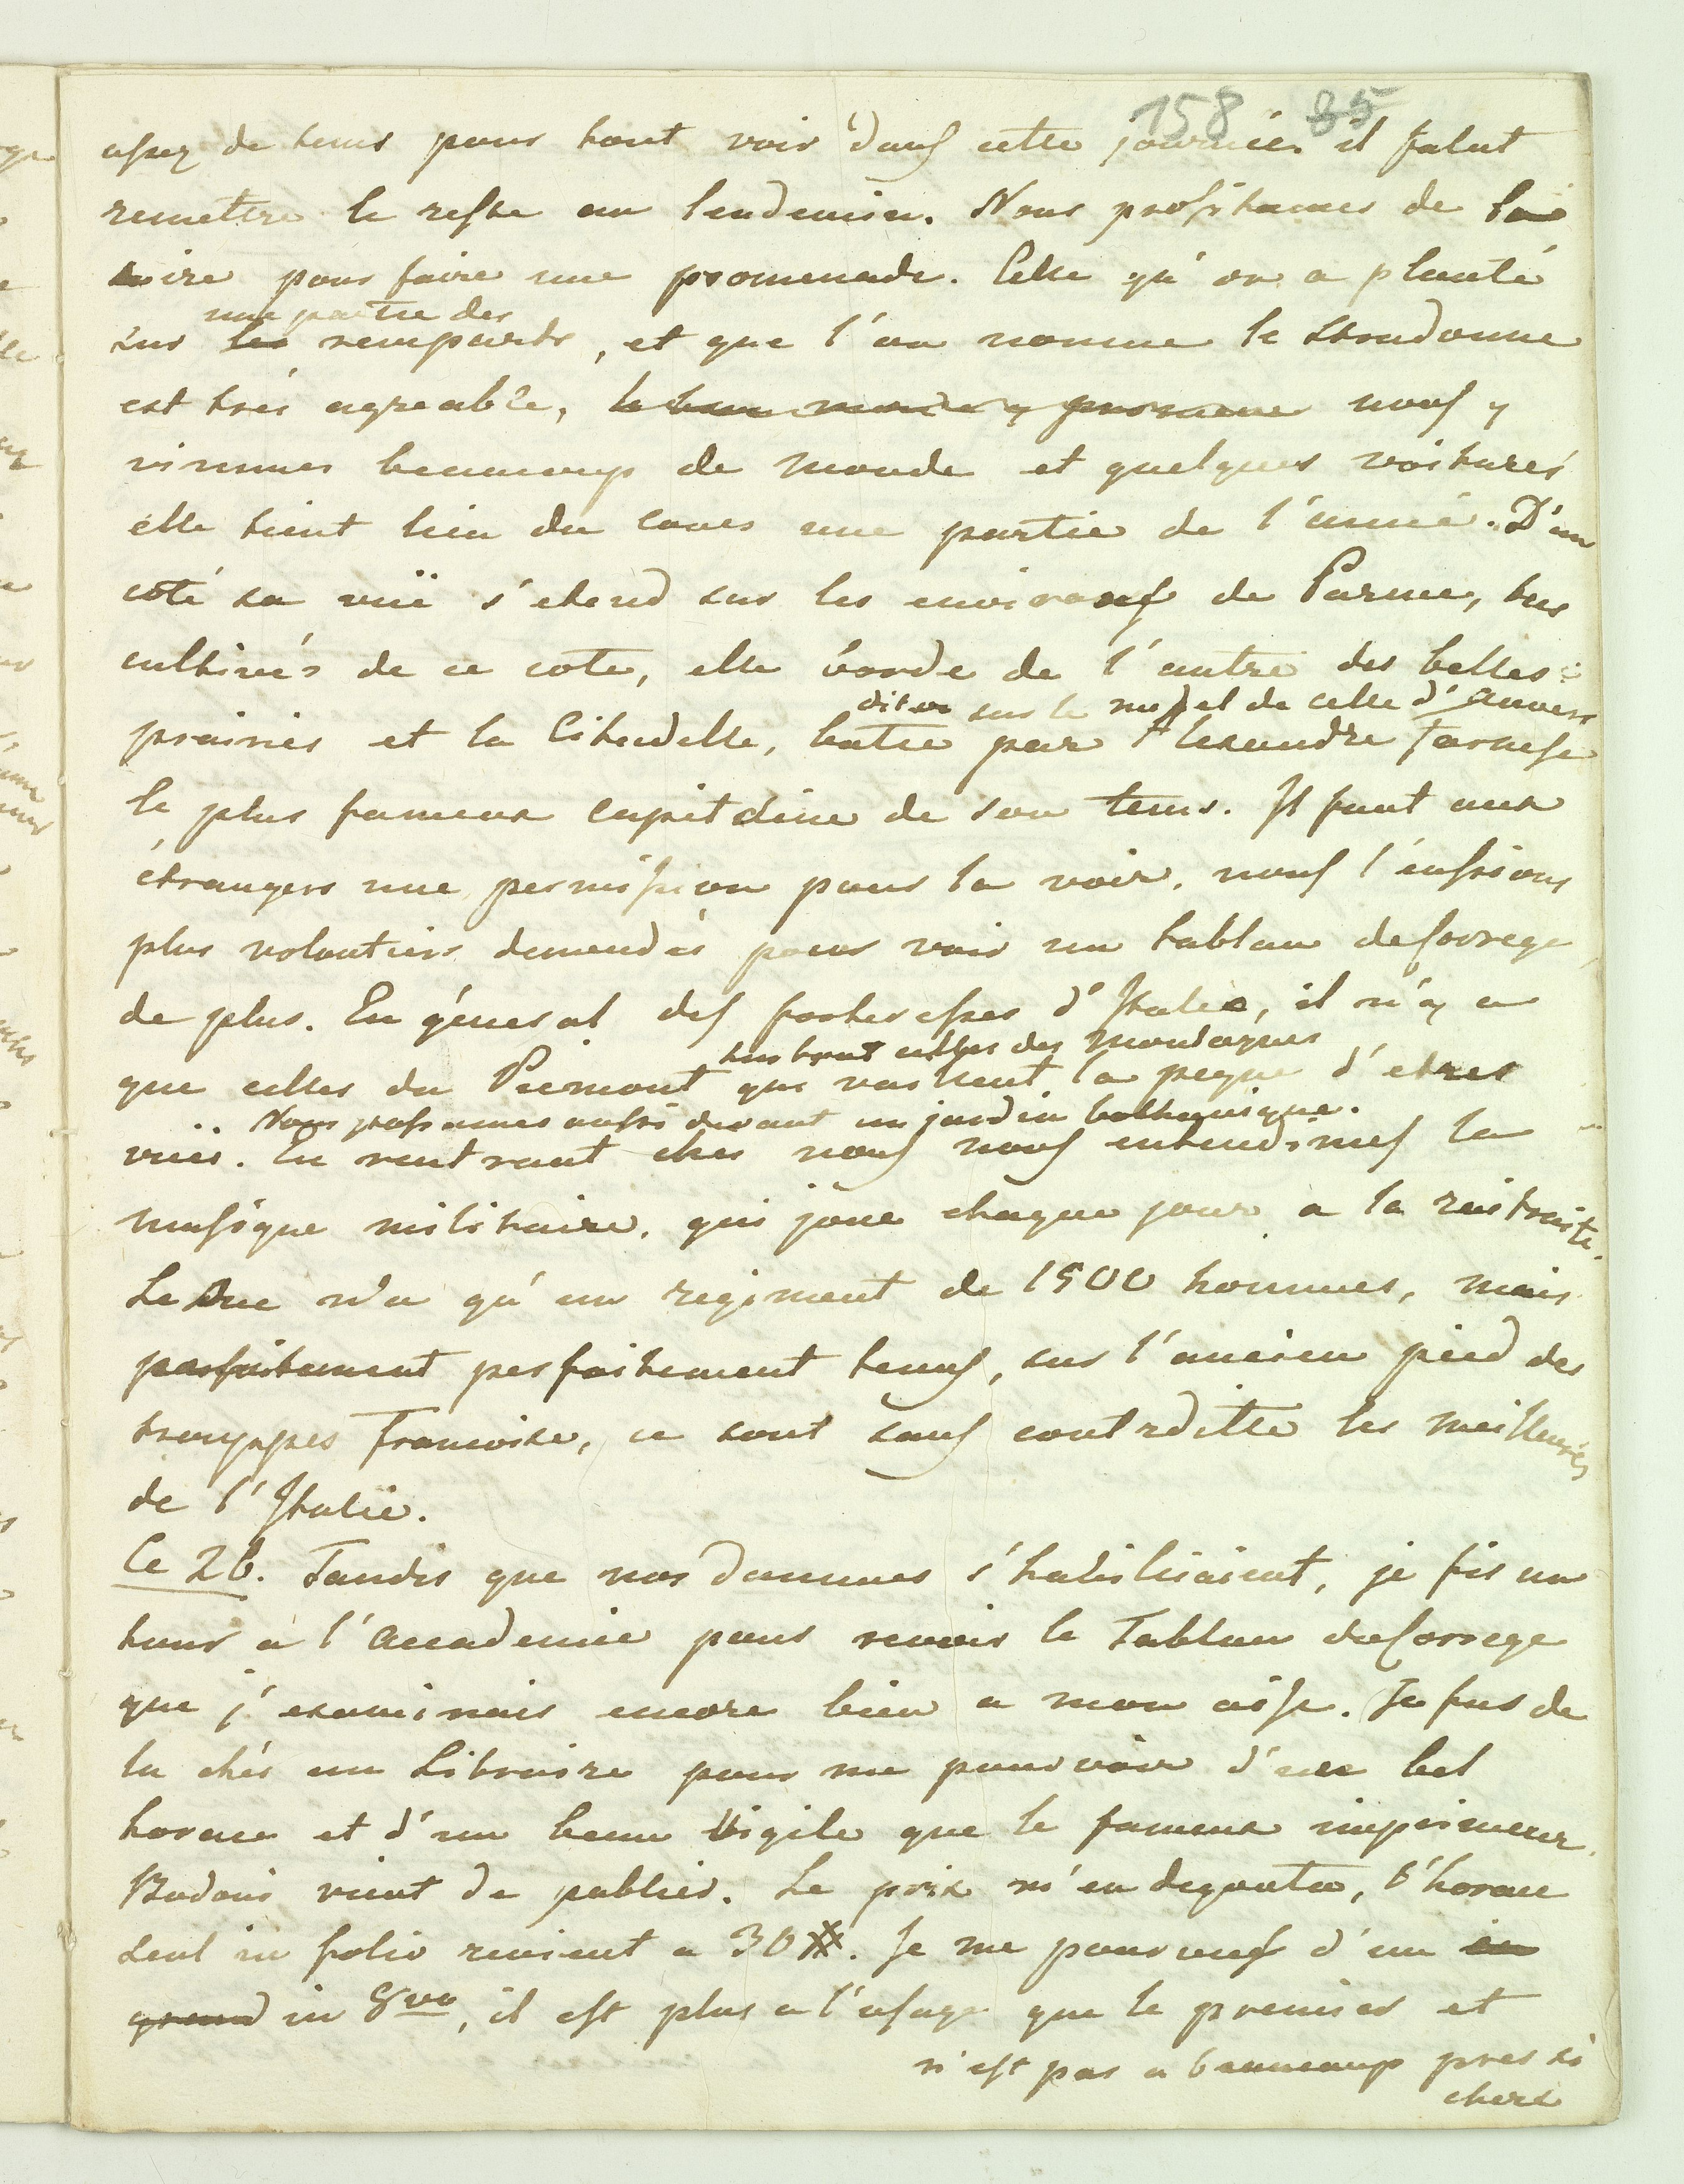 158 85
assez de tems pour tout voir dans cette journée. il falut
remettre le reste au lendemain. Nous profitames de la
soire pour faire une promenade. Celle qu'on a planté
une partie des
sur les remparts, et que l'on nomme le Stradonne
est tres agreable, le beau monde y promene nous y
vimmes beaucoup de monde et quelques voitures
elle tient lieu du cours une partie de l'anneé. D'un
coté sa vuë s'etend sur les environs de Parme, tres
cultivés de ce cote, elle borde de l'autre des belles
dit on sur le model de celle d'Anvers
prairies et la Citadelle, batie par Alexandre Farnese
le plus fameux Capitaine de son tems. Il faut aux
étrangers une permission pour la voir, nous l'eussions
plus volontiers demendés pour voir un tablau de Correge
de plus. En géneral des forteresses d'Italie, il n'a y en
sur tout celles des Montagnes
que celles du Piemont qui vaillent la peque d'etres
Nous passames aussi devant un jardin bothanique.
vuës. En rentrant ches nous nous entendimes la
musique militaire, qui joue chaque jour a la raitraite.
Le Duc n'a qu'un regiment de 1500 hommes, mais
parfaitement perfaitement tenus, sur l'ancien pied des
trouppes Francoise, ce sont sans contreditte les meilleures
de l'Italie.
Ce 26. Tandis que nos dammes s'habiliaient, je fis un
tour a l'Accademie pour revoir le Tablau de Correge
que j'examinais encore bien a mon aise. Je fus de
la chés un Libraire pour me pourvoir d'un bel
horace et d'un beau Vigile que le fameux imprimeur
Bodoni vient de publier. Le prix m'en degoutta, l'horace
seul in folio revient a 30 ⋕. Je me pourveus d'un in
grand in 8vo, il est plus a l'usage que le premier et
n'est pas a beaucoup pres si
chere